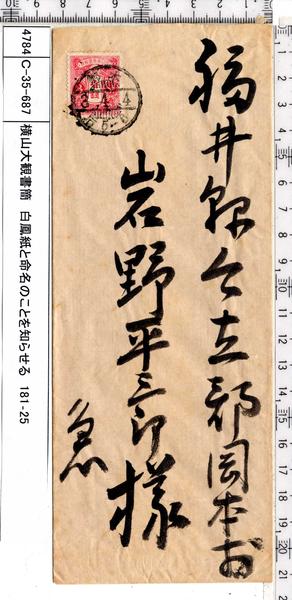 4784 C-35-687 横山大観書簡 白鳳紙と命名のことを知らせる 181-25
福井縣今立郡岡本村
岩野平三郎様
急